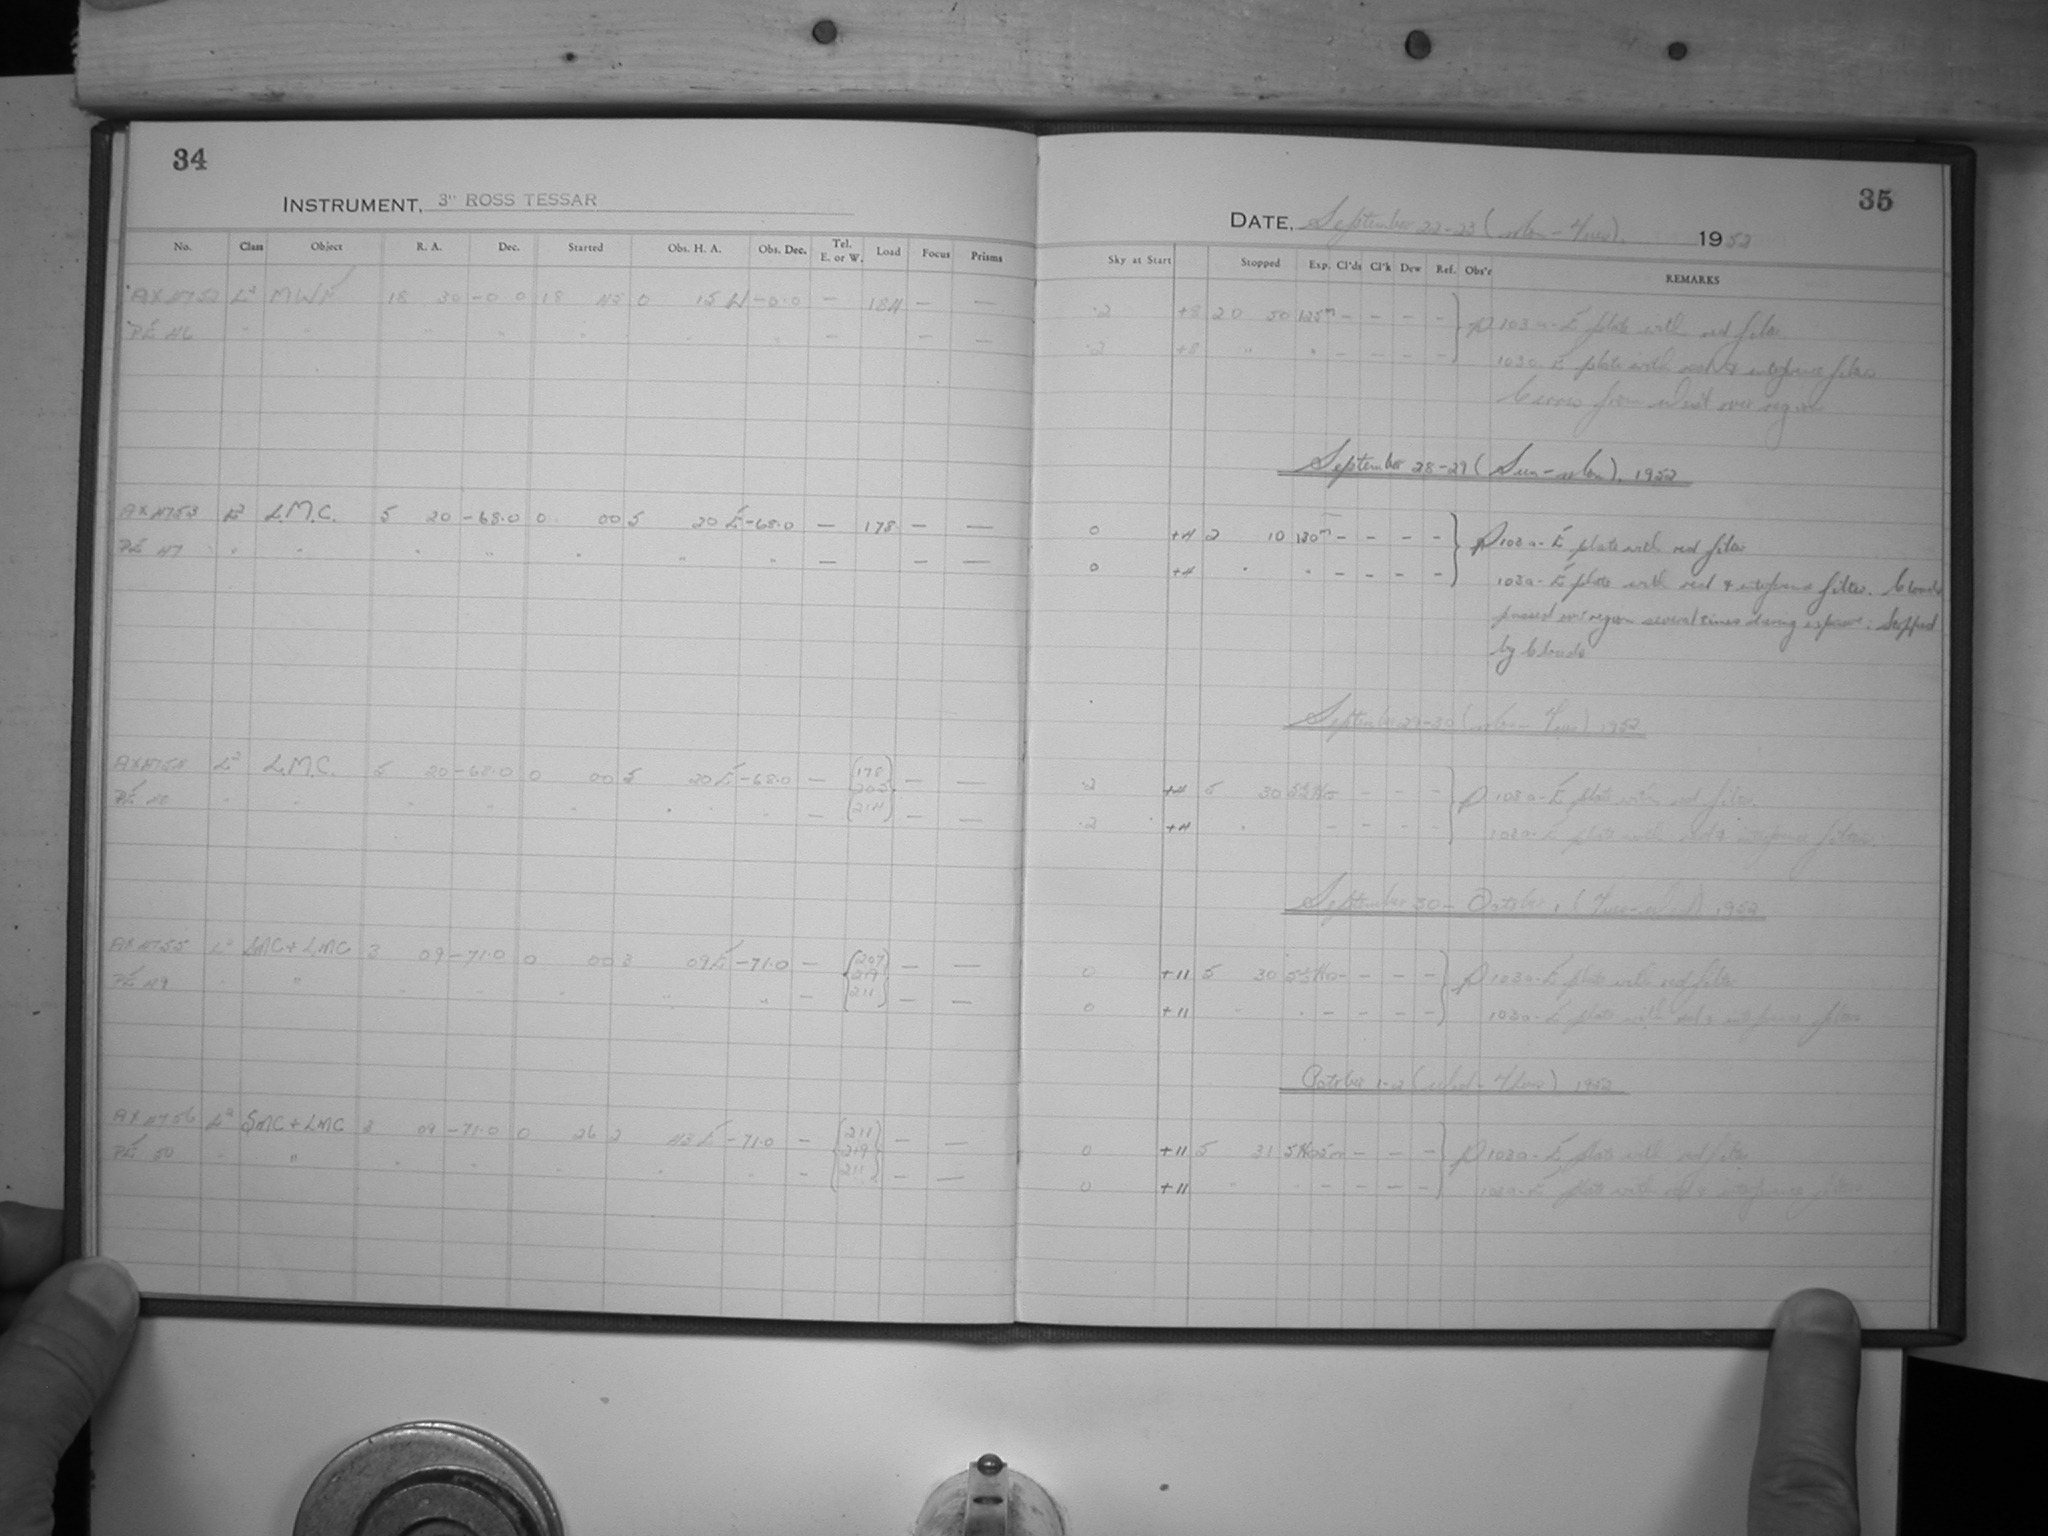 34
INSTRUMENT, 3" ROSS TESSAR
No. Class Object R. A. Dec. Started Obs. H. A. Obs. Dec. Tel. E. or W. Load Focus Prisms
MWF 18 30 -0 0 18 45 0 15 W -0.0 — 184 — —
PE 46 " " " " " " " — — —
L.M.C. 5 20 -68.0 0 00 5 20 E -68.0 — 178 — —
PE 47 " " " " " " " — — —
L.M.C. 5 20 -68.0 0 00 5 20 E -68.0 — 178 — —
211
SMC + LMC 3 09 -71.0 0 00 3 09 E -71.0 — 207 — —
219
PE 49 " " " " " " " — 211 — —
SMC + LMC 3 09 -71.0 0 26 2 43 E -71.0 — 211 — —
219
PE 50 " " " " " " " — 211 — —
35
DATE, September 22-23 (Mon - Tues). 1952
Sky at Start Stopped Exp. Cl'ds Cl'k Dew Ref. Obs'r REMARKS
.2 +8 20 50 125m — — — — 103a-E plate with red filter
.2 +8 " " — — — — 103a-E plate with red & interference filters
Cirrus from West over region
September 28-29 (Sun - Mon). 1952
0 +4 2 10 130m — — — — 103a-E plate with red filter
0 +4 " " — — — — 103a-E plate with red & interference filter. Clouds
passed over region several times during exposure. Stopped
by clouds
September 29-30 (Mon - Tues) 1952
.2 +4 5 30 — — — 103a-E plate with red filter
.2 +4 " — — — — 103a-E plate with red & interference filters.
September 30 - October 1 (Tues - Wed) 1952
0 +11 5 30 — — — — 103a-E plate with red filter
0 +11 " " — — — — 103a-E plate with red & interference filters
October 1-2 (Wed - Thurs) 1952
0 +11 5 31 — — — 103a-E plate with red filter
0 +11 " " — — — — 103a-E plate with red & interference filters